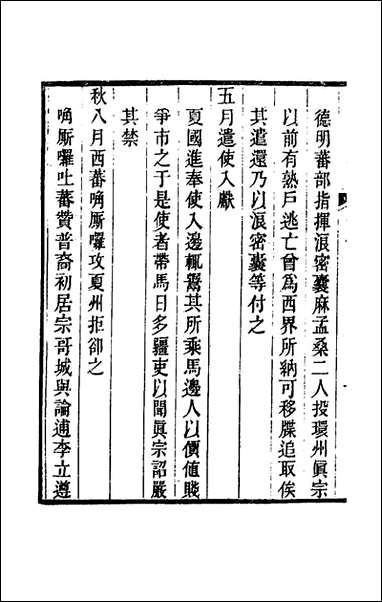 德明蕃部指揮浪密囊麻孟桑二人投環州眞宗
以前有熟戶逃亡曾爲西界所納可移牒追取俟
其遣還乃以浪密囊等付之
五月遣使入獻
夏國進奉使入邊輒鬻其所乘馬邊人以價值賤
爭市之于是使者帶馬日多疆吏以聞眞宗詔嚴
其禁
秋八月西蕃唃厮囉攻夏州拒卻之
唃厮囉吐蕃贊普裔初居宗哥城與論逋李立遵